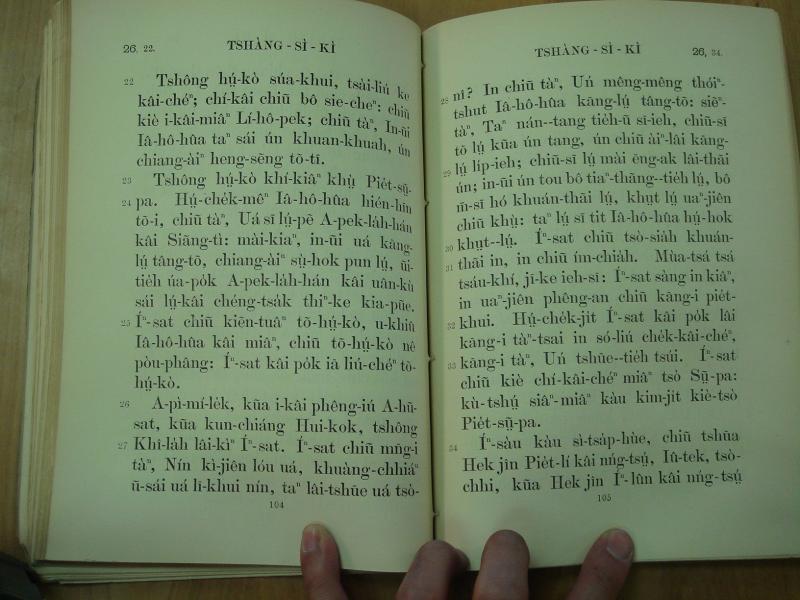 26. 22. TSHÀNG - SÌ - KÌ
22 Tshông hṳ́-kò súa-khui, tsài-liú ke
kâi-chéⁿ; chí-kâi chiū bô sie-cheⁿ: chiū
kiè i-kâi-miâⁿ Lí-hô-pek; chiū tàⁿ, In-ūi
Iâ-hô-hûa taⁿ sái ún khuan-khuah, ún
chiang-àiⁿ heng-sēng tō-tī.
23 Tshông hṳ́-kò khí-kiâⁿ khṳ̀ Piet-sṳ̄-
24 pa. Hṳ́-chek-mêⁿ Iâ-hô-hûa hién-hīn
tō-i, chiū tàⁿ, Uá sĩ lṳ́-pẽ A-pek-lah-hán
kâi Siāng-tì: mài-kiaⁿ, in-ūi uá kāng-
lṳ́ tâng-tō, chiang-àiⁿ sṳ̀-hok pun lṳ́, ūi-
tieh úa-pok A-pek-lah-hán kâi uân-kù
sái lṳ́-kâi chéng-tsak thiⁿ-ke kia-pūe.
25 Íⁿ-sat chiū kiēn-tuâⁿ tō-hṳ́-kò, u-khiū
Iâ-hô-hûa kâi miâⁿ, chiū tō-hṳ́-kò nê
pòu-phâng: Íⁿ-sat kâi pok iā liú-chéⁿ tō-
hṳ́-kò.
26 A-pì-mí-lek, kūa i-kâi phêng-iú A-hū-
sat, kūa kun-chiáng Hui-kok, tshông
27 Khî-lah lâi-kìⁿ Íⁿ-sat. Íⁿ-sat chiū mn̄g-i
tàⁿ, Nín kì-jiên lóu uá, khuàng-chhiáⁿ
ū-sái uá lī-khui nín, taⁿ lâi-tshūe uá tsò-
104
TSHÀNG - SÌ - KÌ 26, 34.
28 nî? In chiū tàⁿ, Uń mêng-mêng thóiⁿ-
tshut Iâ-hô-hûa kāng-lṳ́ tâng-tō: siēⁿ-
tàⁿ, Taⁿ nán--tang tieh-ū sī-ieh, chiū-sĩ
tō lṳ́ kūa ún tang, ún chiū àiⁿ-lâi kāng-
29 lṳ́ lip-ieh; chiū-sĩ lṳ́ mài êng-ak lâi-thāi
ún; in-ūi ún tou bô tiaⁿ-thāng--tieh lṳ́, bô
m̄-sĩ hó khuán-thāi lṳ́, khṳt lṳ́ uaⁿ-jiên
chiū khṳ̀: taⁿ lṳ́ sĩ tit Iâ-hô-hûa hṳ́-hok
30 khṳt--lṳ́. Íⁿ-sat chiū tsò-siah khuán-
31 thāi in, in chiū ím-chiah. Mùa-tsá tsá
tsáu-khí, jī-ke ieh-sī: Íⁿ-sat sàng in kiâⁿ,
in uaⁿ-jiên phêng-an chiū kāng-i piet-
32 khui. Hṳ́-chek-jit Íⁿ-sat kâi pok lâi
kāng-i tàⁿ-tsai in só-liú chek-kâi-chéⁿ,
33 kāng-i tàⁿ, Uń tshūe--tieh tsúi. Íⁿ-sat
chiū kiè chí-kâi-chéⁿ miâⁿ tsò Sṳ̄-pa:
kù-tshṳ́ siâⁿ-miâⁿ kàu kim-jit kiè-tsò
Piet-sṳ̄-pa.
34 Íⁿ-sàu kàu sì-tsap-hùe, chiū tshūa
Hek jîn Piet-lí kâi nńg-tsṳ́, Iû-tek, tsò-
chhi, kūa Hek jîn Íⁿ-lûn kâi nńg-tsṳ́
105